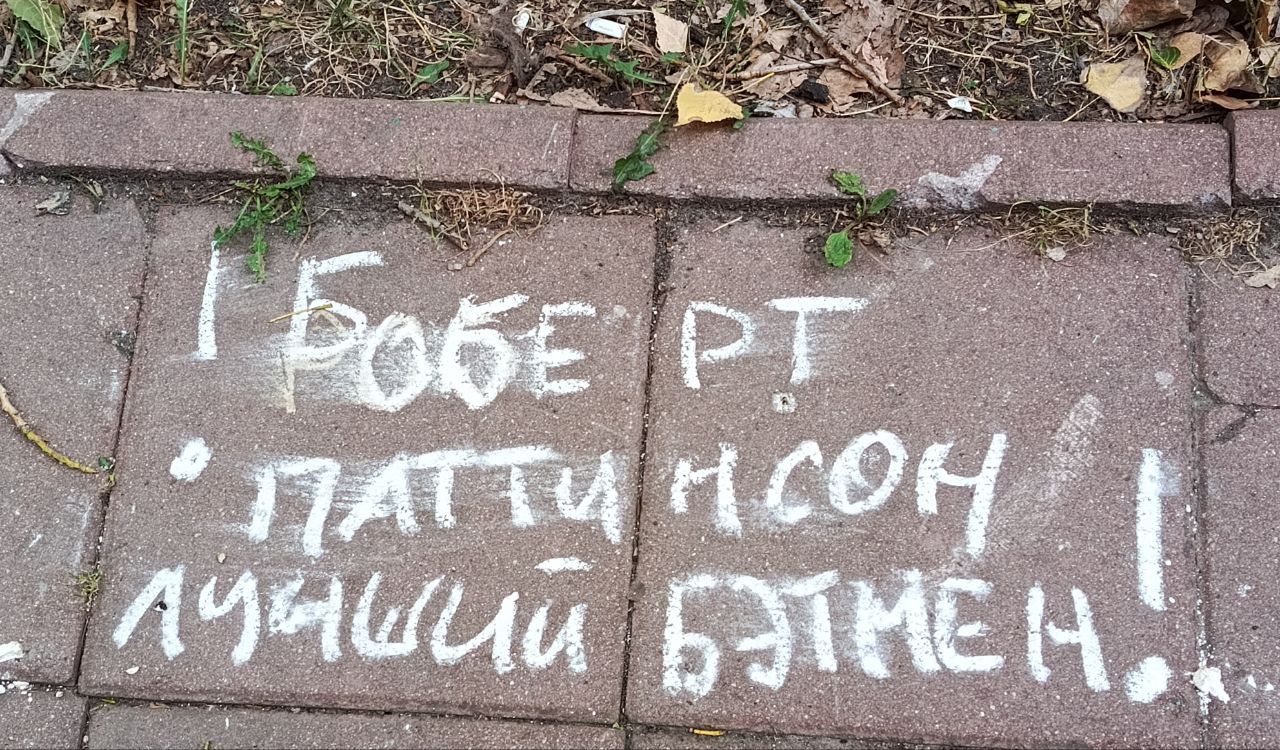 ! РОБЕРТ
ПАТТИНСОН !
ЛУЧШИЙ БЭТМЕН